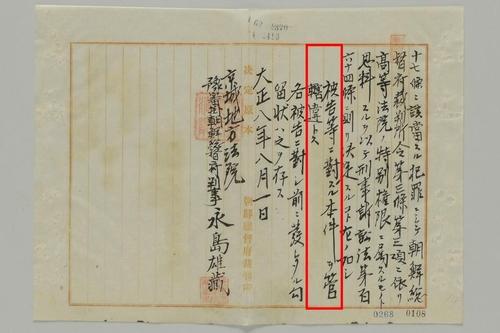 十七條ニ該當スル犯罪ニシテ朝鮮總
督府裁判所令第三條第三項ニ依リ
高等法院ノ特別權限ニ屬スルモノト
思料スルヲ以テ刑事訴訟法第百
六十四條ニ則リ決定スルコト左ノ如シ
被告等ニ對スル本件ヲ管
轄違トス
各被告ニ對シ前ニ發シタル勾
留狀ハ之ヲ存ス
大正八年八月一日
決定原本
朝鮮總督府裁判所
京城地方法院
豫審掛朝鮮總督府判事
永島雄藏
0268
0108